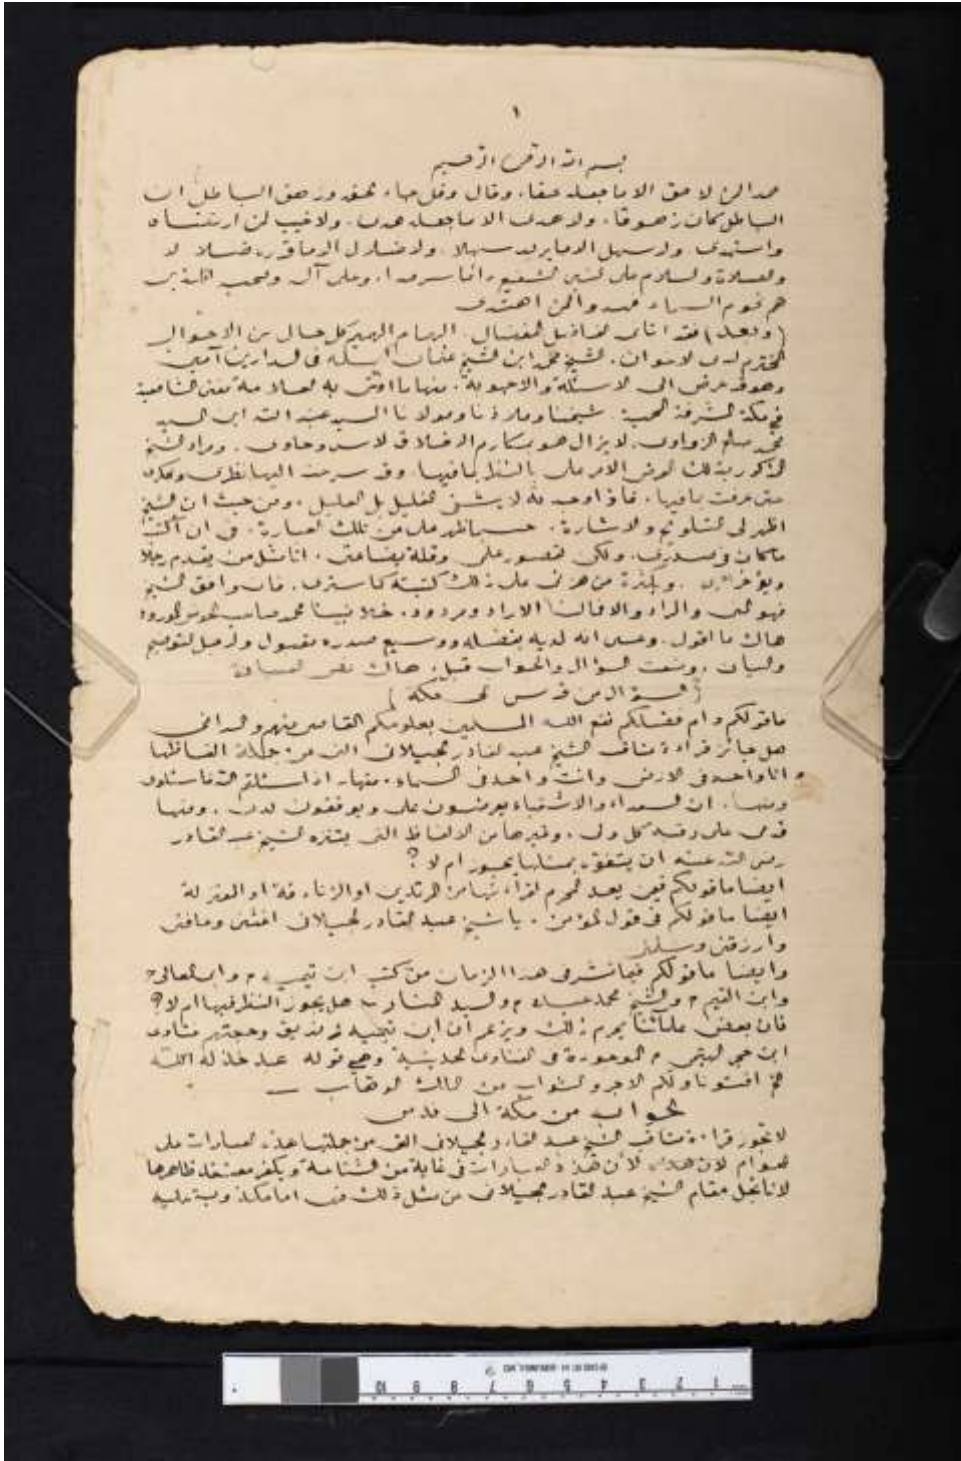 ١
بسم الله الرحمن الرحيم
حمدا لمن لا حق الا ما جعله حقا، وقال وقل جاء الحق وزهق الباطل ان
الباطل كان زهوقا، ولا هدى الا ما جعله هدى، ولا خيب لمن ارتضاه
واستهدى ولا سهل الا ما يراه سهلا، ولا ضلال الا ما قرره ضلالا
والصلاة والسلام على النبي الشفيع دائما سرمدا، وعلى آل وصحب الذين
هم نجوم السماء لمن اهتدى
(وبعد) فقد اتانى الفاضل المفضال، الهمام كل حال من الاحوال
المحترم لدى الاخوان، الشيخ محمد ابن الشيخ عثمان فى الدارين آمين
وهو قد عرض الى الاسئلة والاجوبة، منها ما افتى به العلامة مفتى الشافعية
فى مكة المشرفة المحمية شيخنا وملاذنا ومولانا السيد عبد الله ابن السيد
محمد صالح الزواوى، لا يزال هو بمكارم الاخلاق حاوى، ومراد الشيخ
المذكور بذلك العرض الامر على بالنظر بما فيها وقد سرحت اليها نظرى وفكرى
حتى عرفت ما فيها، فاذا وجدته لا يشفى الغليل بل العليل، ومن حيث ان الشيخ
اظهر لى التلويح والاشارة، حسبما ظهر على من تلك العبارة، فى ان اكتب
ما كان فى صدرى، ولكن لقصور علمى وقلة بضاعتى، انا مثل من يقدم رجلا
ويؤخر اخرى، من على ذلك كتبته كما سترى، فان وافق الشيخ
فهو المنى والمراد والا فالنا الا الرد ومردود، خلا نبينا محمد صاحب الحوض المورود
هاك ما اقول، وعسى انه لديه بفضله ووسيع صدره مقبول ولاجل التوضيح
والبيان، وضعت السؤال والجواب قبل، هاك نص
(السؤال من قدس الى مكة)
ما قولكم دام فضلكم نفع الله المسلمين بعلومكم القاصى منهم والدانى
هل جائز قراءة مناقب الشيخ عبد القادر الجيلانى التى من جملة الفاظها
انا واحد فى الارض وانت واحد فى السماء، منها،
ومنها، ان السعداء والاشقياء يعرضون على ويوقفون لدى، ومنها
قدمى على رقبة كل ولى، وغيرها من الالفاظ التى يتنزه الشيخ عبد القادر
رضى الله عنه ان يتفوه بمثلها يجوز ام لا؟
ايضا ما قولكم فيمن يعد المحرم لقراءتها من المرتدين او الزنادقة او المعتزلة
ايضا ما قولكم فى قول المؤمن، يا شيخ عبد القادر الجيلانى اغثنى وعافنى
وارزقنى
وايضا ما قولكم فيما نشر فى هذا الزمان من كتب ابن تيمية
وابن القيم والشيخ محمد عبده والسيد هل يجوز النظر فيها ام لا؟
فان بعض علمائنا يحرم ذلك ويزعم ان ابن تيمية زنديق وحجتهم فتاوى
ابن حجر الهيتمى الموجودة فى الفتاوى الحديثية وهى قوله عبد خذله الله
الخ افتونا ولكم الاجر والثواب من المالك الوهاب
الجواب من مكة الى قدس
لا تجوز قراءة مناقب الشيخ عبد القادر الجيلانى التى من جملتها هذه العبارات على
العوام لان هذه العبارات فى غاية من الشناعة ويكفر معتقد ظاهرها
لانا نجل مقام الشيخ عبد القادر الجيلانى من مثل ذلك